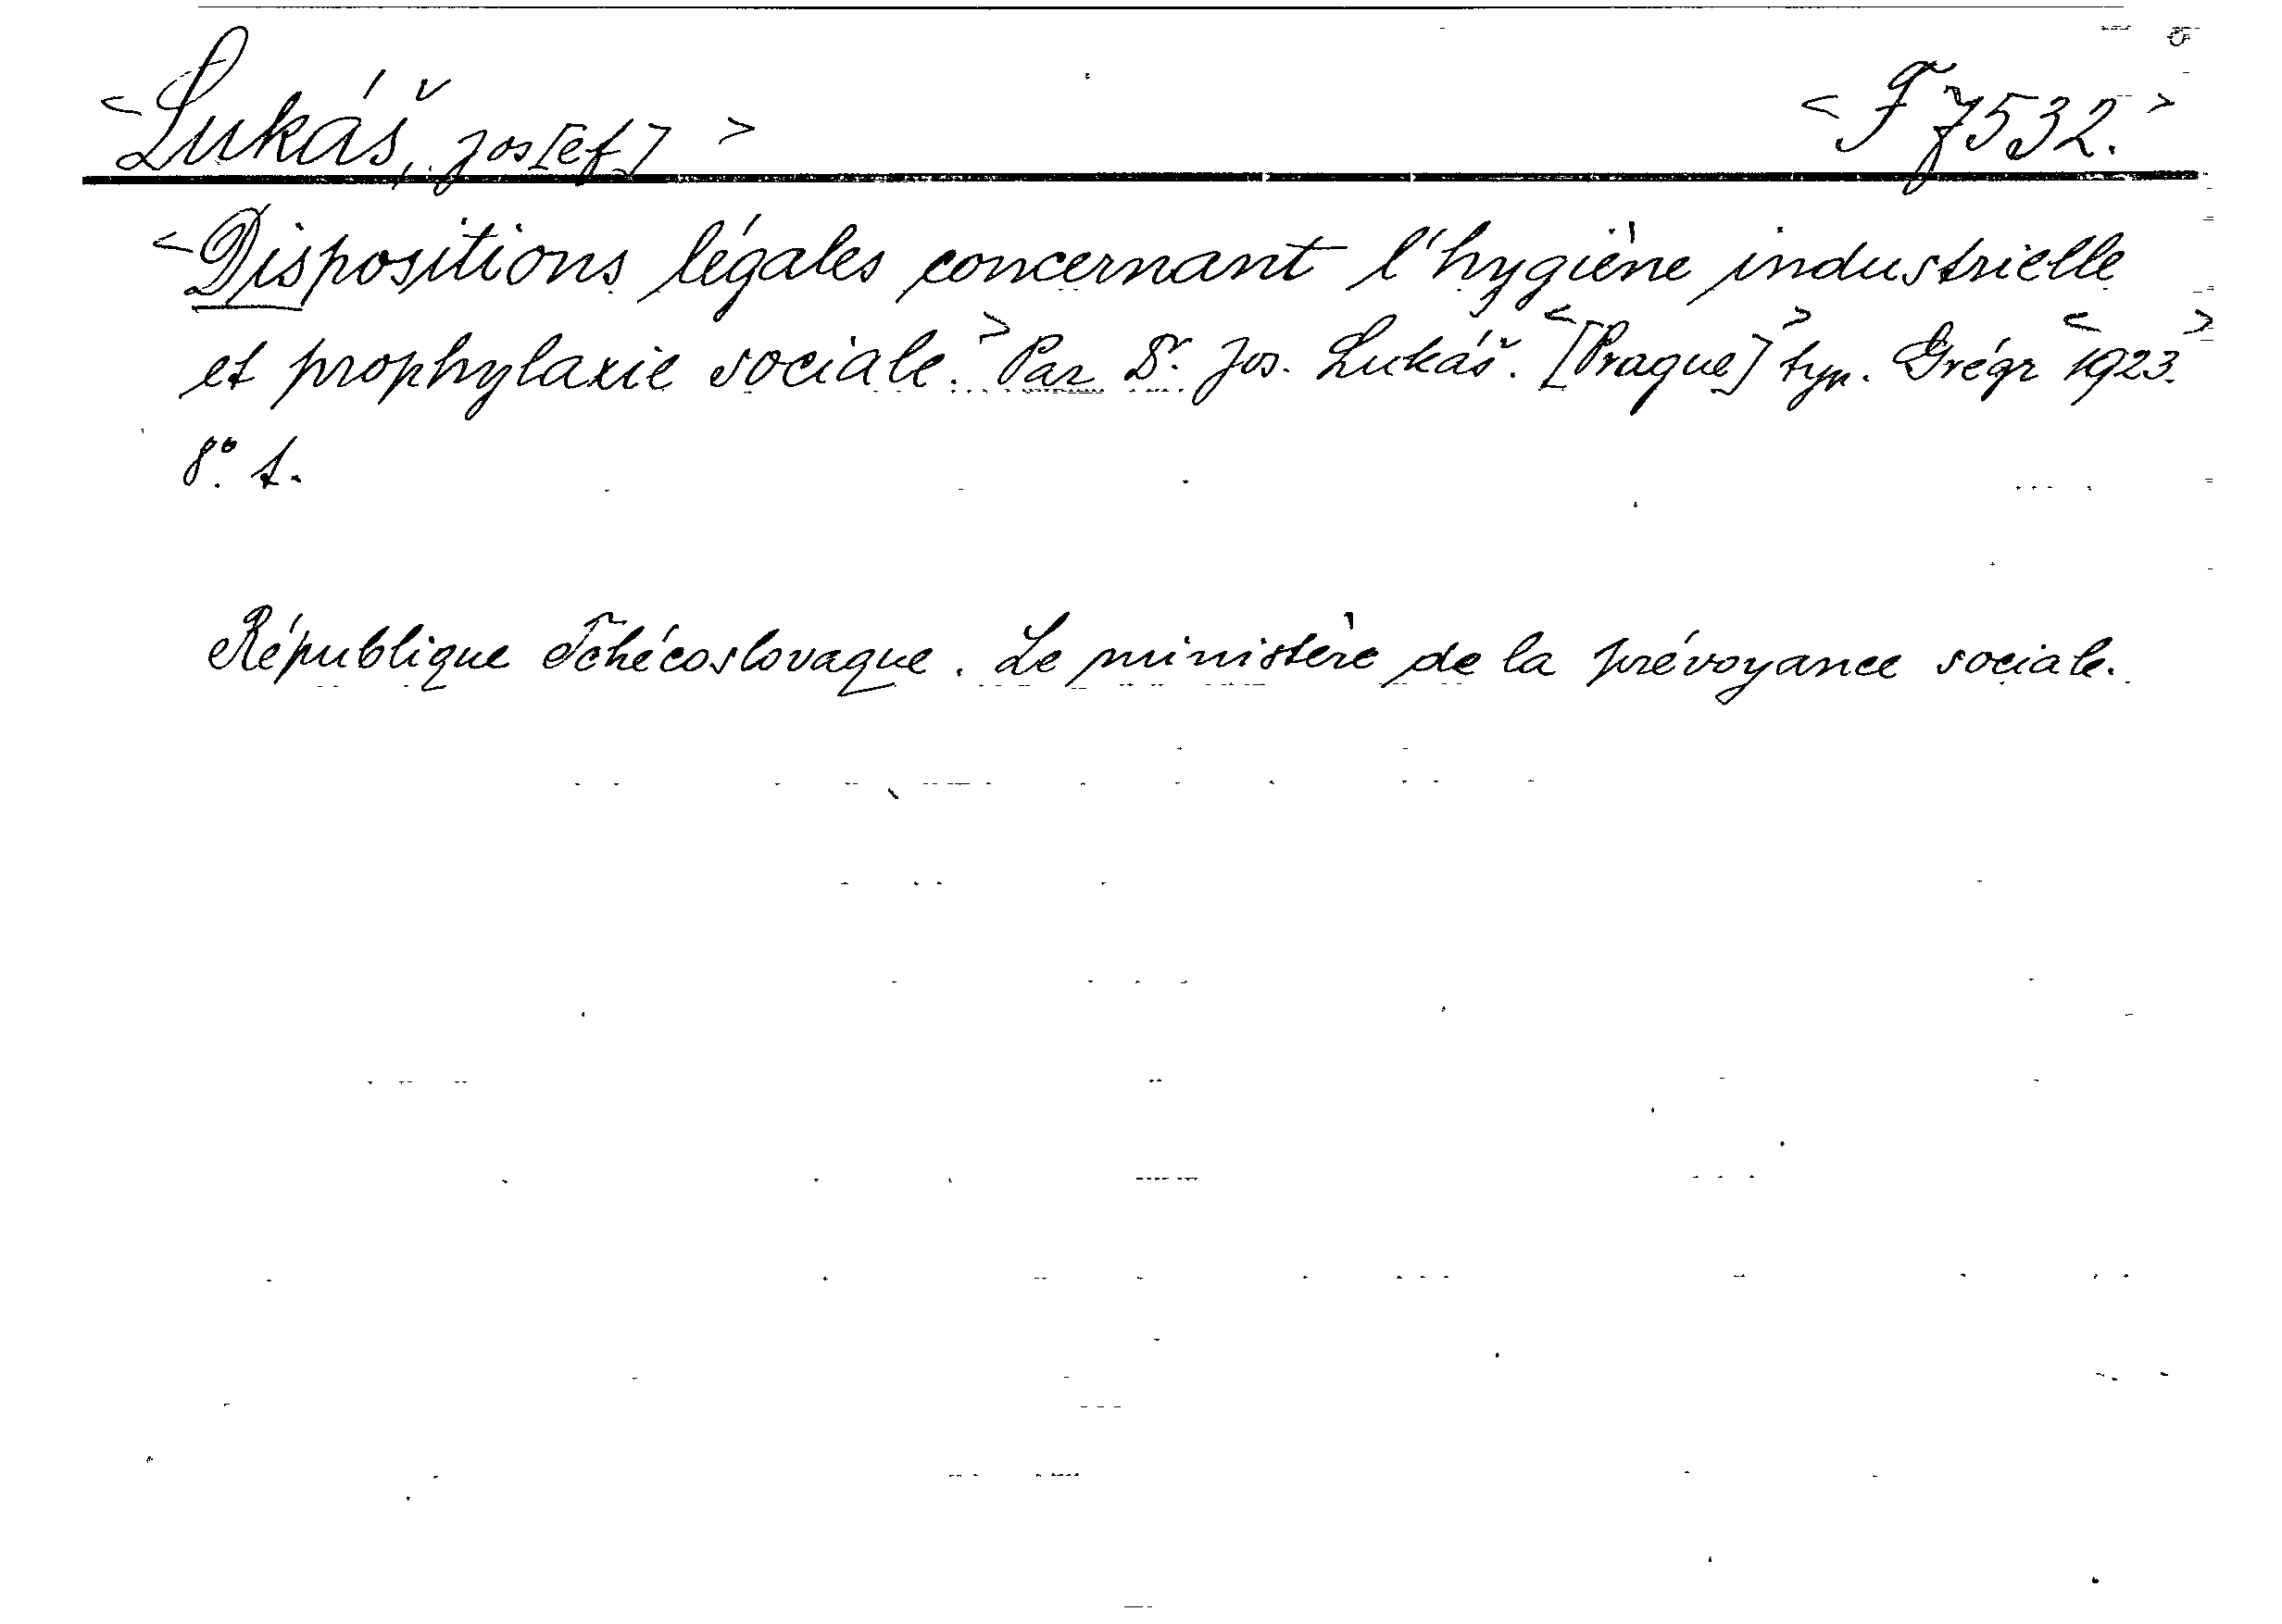 <Lukáš, Jos[ef]> <F 7532.>
<Dispositions légales concernant l'hygiène industrielle
et prophylaxie sociale.> Par Dr. Jos. Lukáš. <[Prague]> typ. Grégr <1923.>
8°. s.
République Tchécoslovaque. Le ministère de la prévoyance sociale.